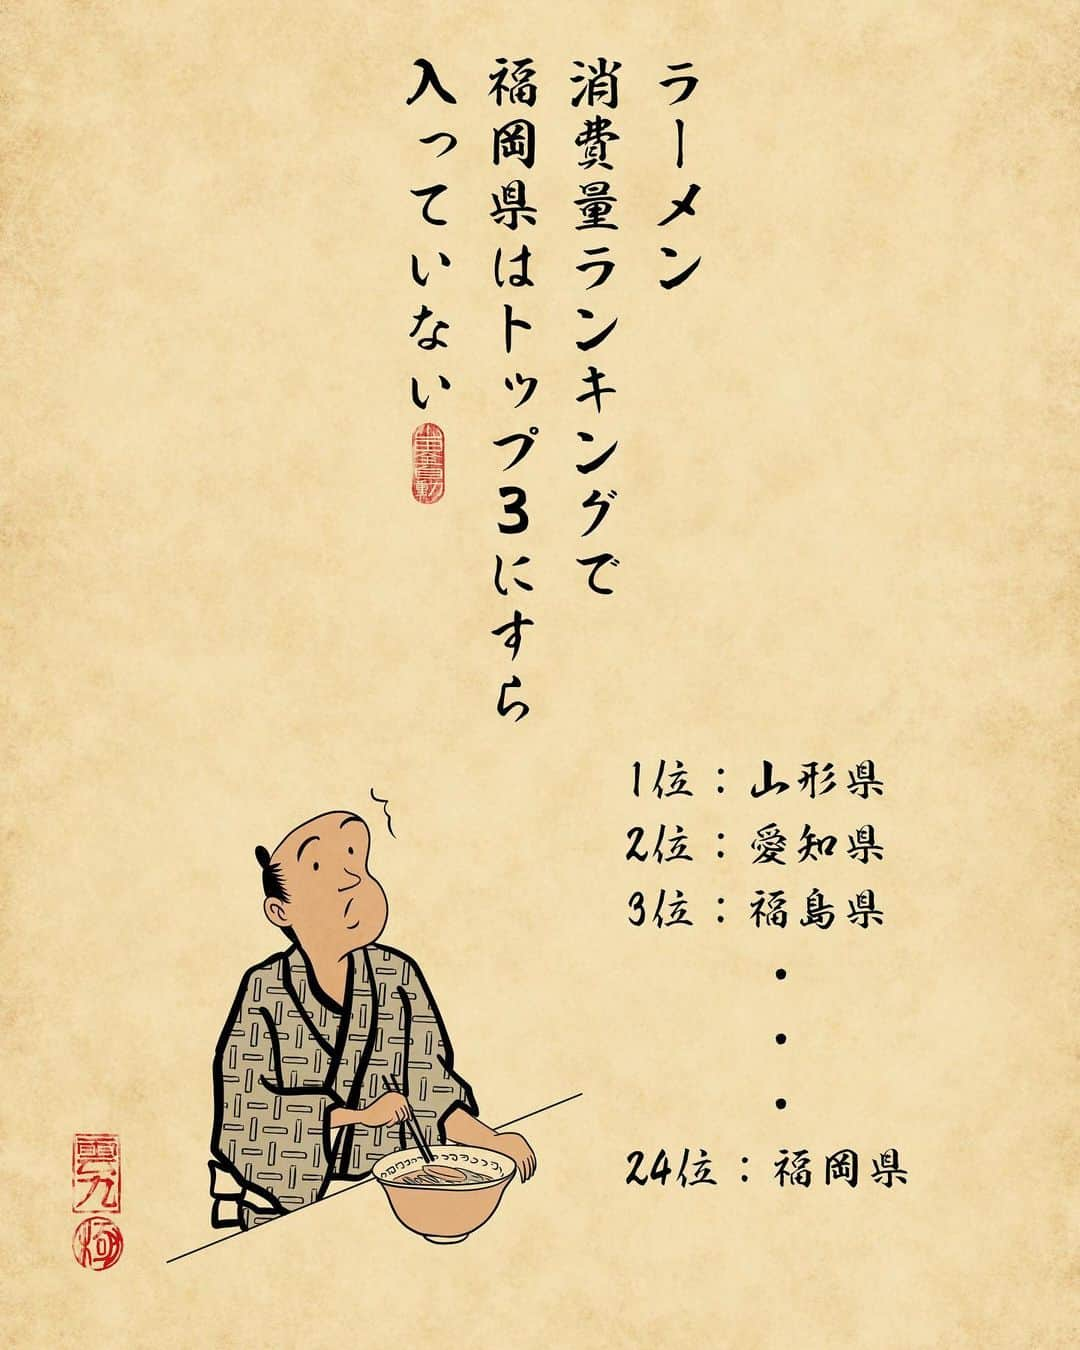 ラーメン
消費量ランキングで
福岡県はトップ3にすら
入っていない
1位：山形県
2位：愛知県
3位：福島県
・
・
・
24位：福岡県